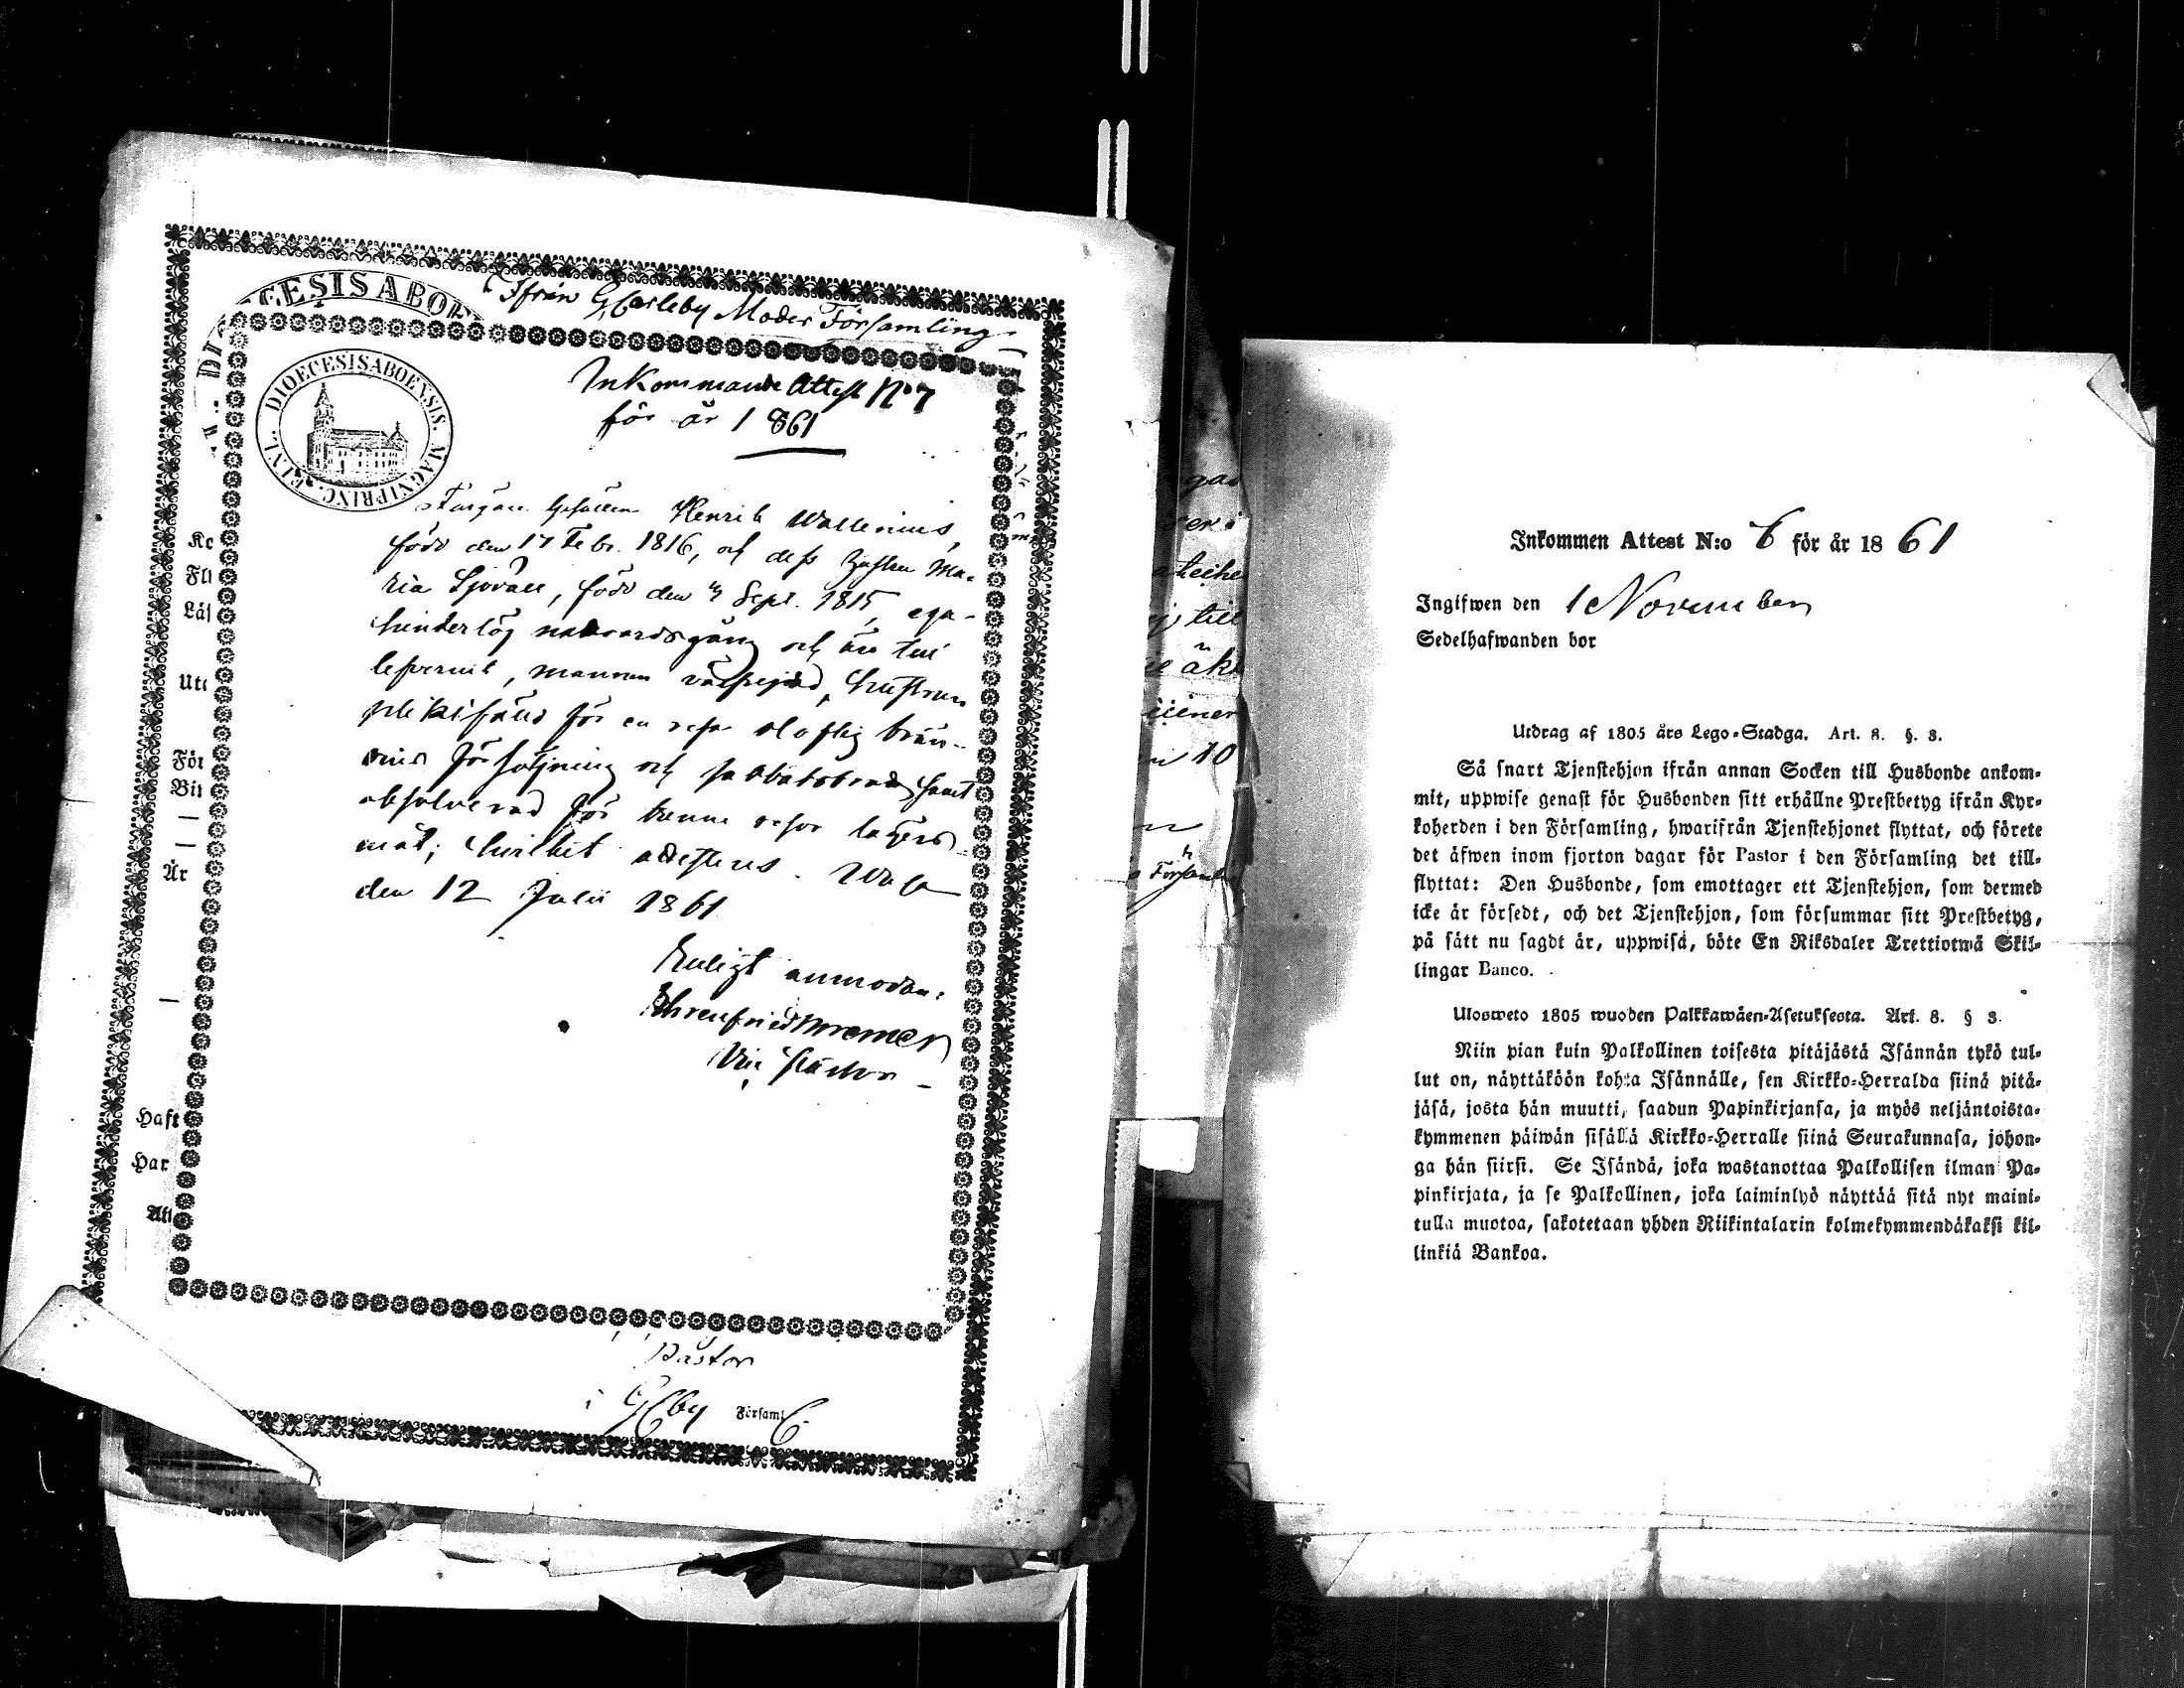 CESIS ABOE
Ifrån GCarleby Moder Församling
DIOECESIS ABOENSIS. MAGNI PRINC. FINL.
Inkommande Attest No 7
för år 1861
Henrik Wallenius,
född den 17 Febr. 1816, och dess Ma-
ria Sjövall, född den 4 Sept. 1815, ega
hinderlös nattvardsgång och äro
mannen hustrun
för en resa olaflig brän-
vins försäljning och sabbatsbrott, samt
absolverad för trenne resor lägers-
mål; hvilket attesteras. Wasa
den 12 Julii 1861
Enligt anmodan:
Ehrenfried Bremer
Vice Pastor
Ke
Flt
Läs
Utt
För
Bit
År
Haft
Har
Att
Pastor
i GCby Församl
Inkommen Attest N:o 6 för år 1861
Ingifwen den 1 November
Sedelhafwanden bor
Utdrag af 1805 års Lego-Stadga. Art. 8. §. 8.
Så snart Tjenstehjon ifrån annan Socken till Husbonde ankom-
mit, uppwise genast för Husbonden sitt erhållne Prestbetyg ifrån Kyr-
koherden i den Församling, hwarifrån Tjenstehjonet flyttat, och förete
det äfwen inom fjorton dagar för Pastor i den Församling det till-
flyttat: Den Husbonde, som emottager ett Tjenstehjon, som dermed
icke är försedt, och det Tjenstehjon, som försummar sitt Prestbetyg,
på sätt nu sagdt är, uppwisa, böte En Riksdaler Trettiotwå Skil-
lingar Banco.
Ulosweto 1805 wuoden Palkkawäen-Asetuksesta. Art. 8. § 8.
Niin pian kuin Palkollinen toisesta pitäjästä Isännän tykö tul-
lut on, näyttäköön kohta Isännälle, sen Kirkko-Herralda siinä pitä-
jäsä, josta hän muutti, saadun Papinkirjansa, ja myös neljäntoista-
kymmenen päiwän sisällä Kirkko-Herralle siinä Seurakunnasa, johon-
ga hän siirsi. Se Isändä, joka wastanottaa Palkollisen ilman Pa-
pinkirjata, ja se Palkollinen, joka laiminlyö näyttää sitä nyt maini-
tulla muotoa, sakotetaan yhden Riikintalarin kolmekymmendäkaksi kil-
linkiä Bankoa.